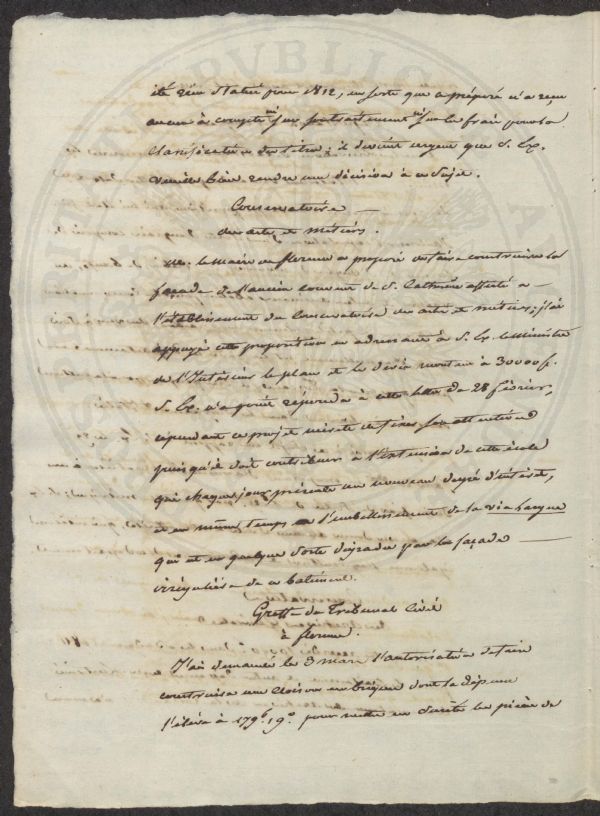 été rien statué pour 1812, en sorte que ce préposé n'a reçu
aucun à compte ni sur son traitement ni sur les frais pour la
classification des titres; il devient urgent que S. Ex.
veuille bien rendre une décision à ce sujet.
Conservatoire
des arts et métiers.
M. le Maire de florence a proposé de faire construire la
façade de l'ancien couvent de S. Catherine affecté à
l'établissement du Conservatoire des arts et métiers; j'ai
appuyé cette proposition en adressant à S. Ex. le Ministre
de l'Intérieur le plan et les devis montant à 30000 f.
S. Ex. n'a point répondu à cette lettre du 28 février,
cependant ce projet mérite de fixer son attention
puisqu'il doit contribuer à l'extension de cette école
qui chaque jour présente un nouveau degré d'intérêt,
et en même temps à l'embellissement de la via Larga
qui est en quelque sorte dégradée par la façade
irrégulière de ce batiment.
Greffe du Tribunal Civil
à florence.
J'ai demandé le 3 mars l'autorisation de faire
construire une cloison en briques dont la dépense
s'élève à 179 f. 19 c. pour mettre en sureté les pièces de